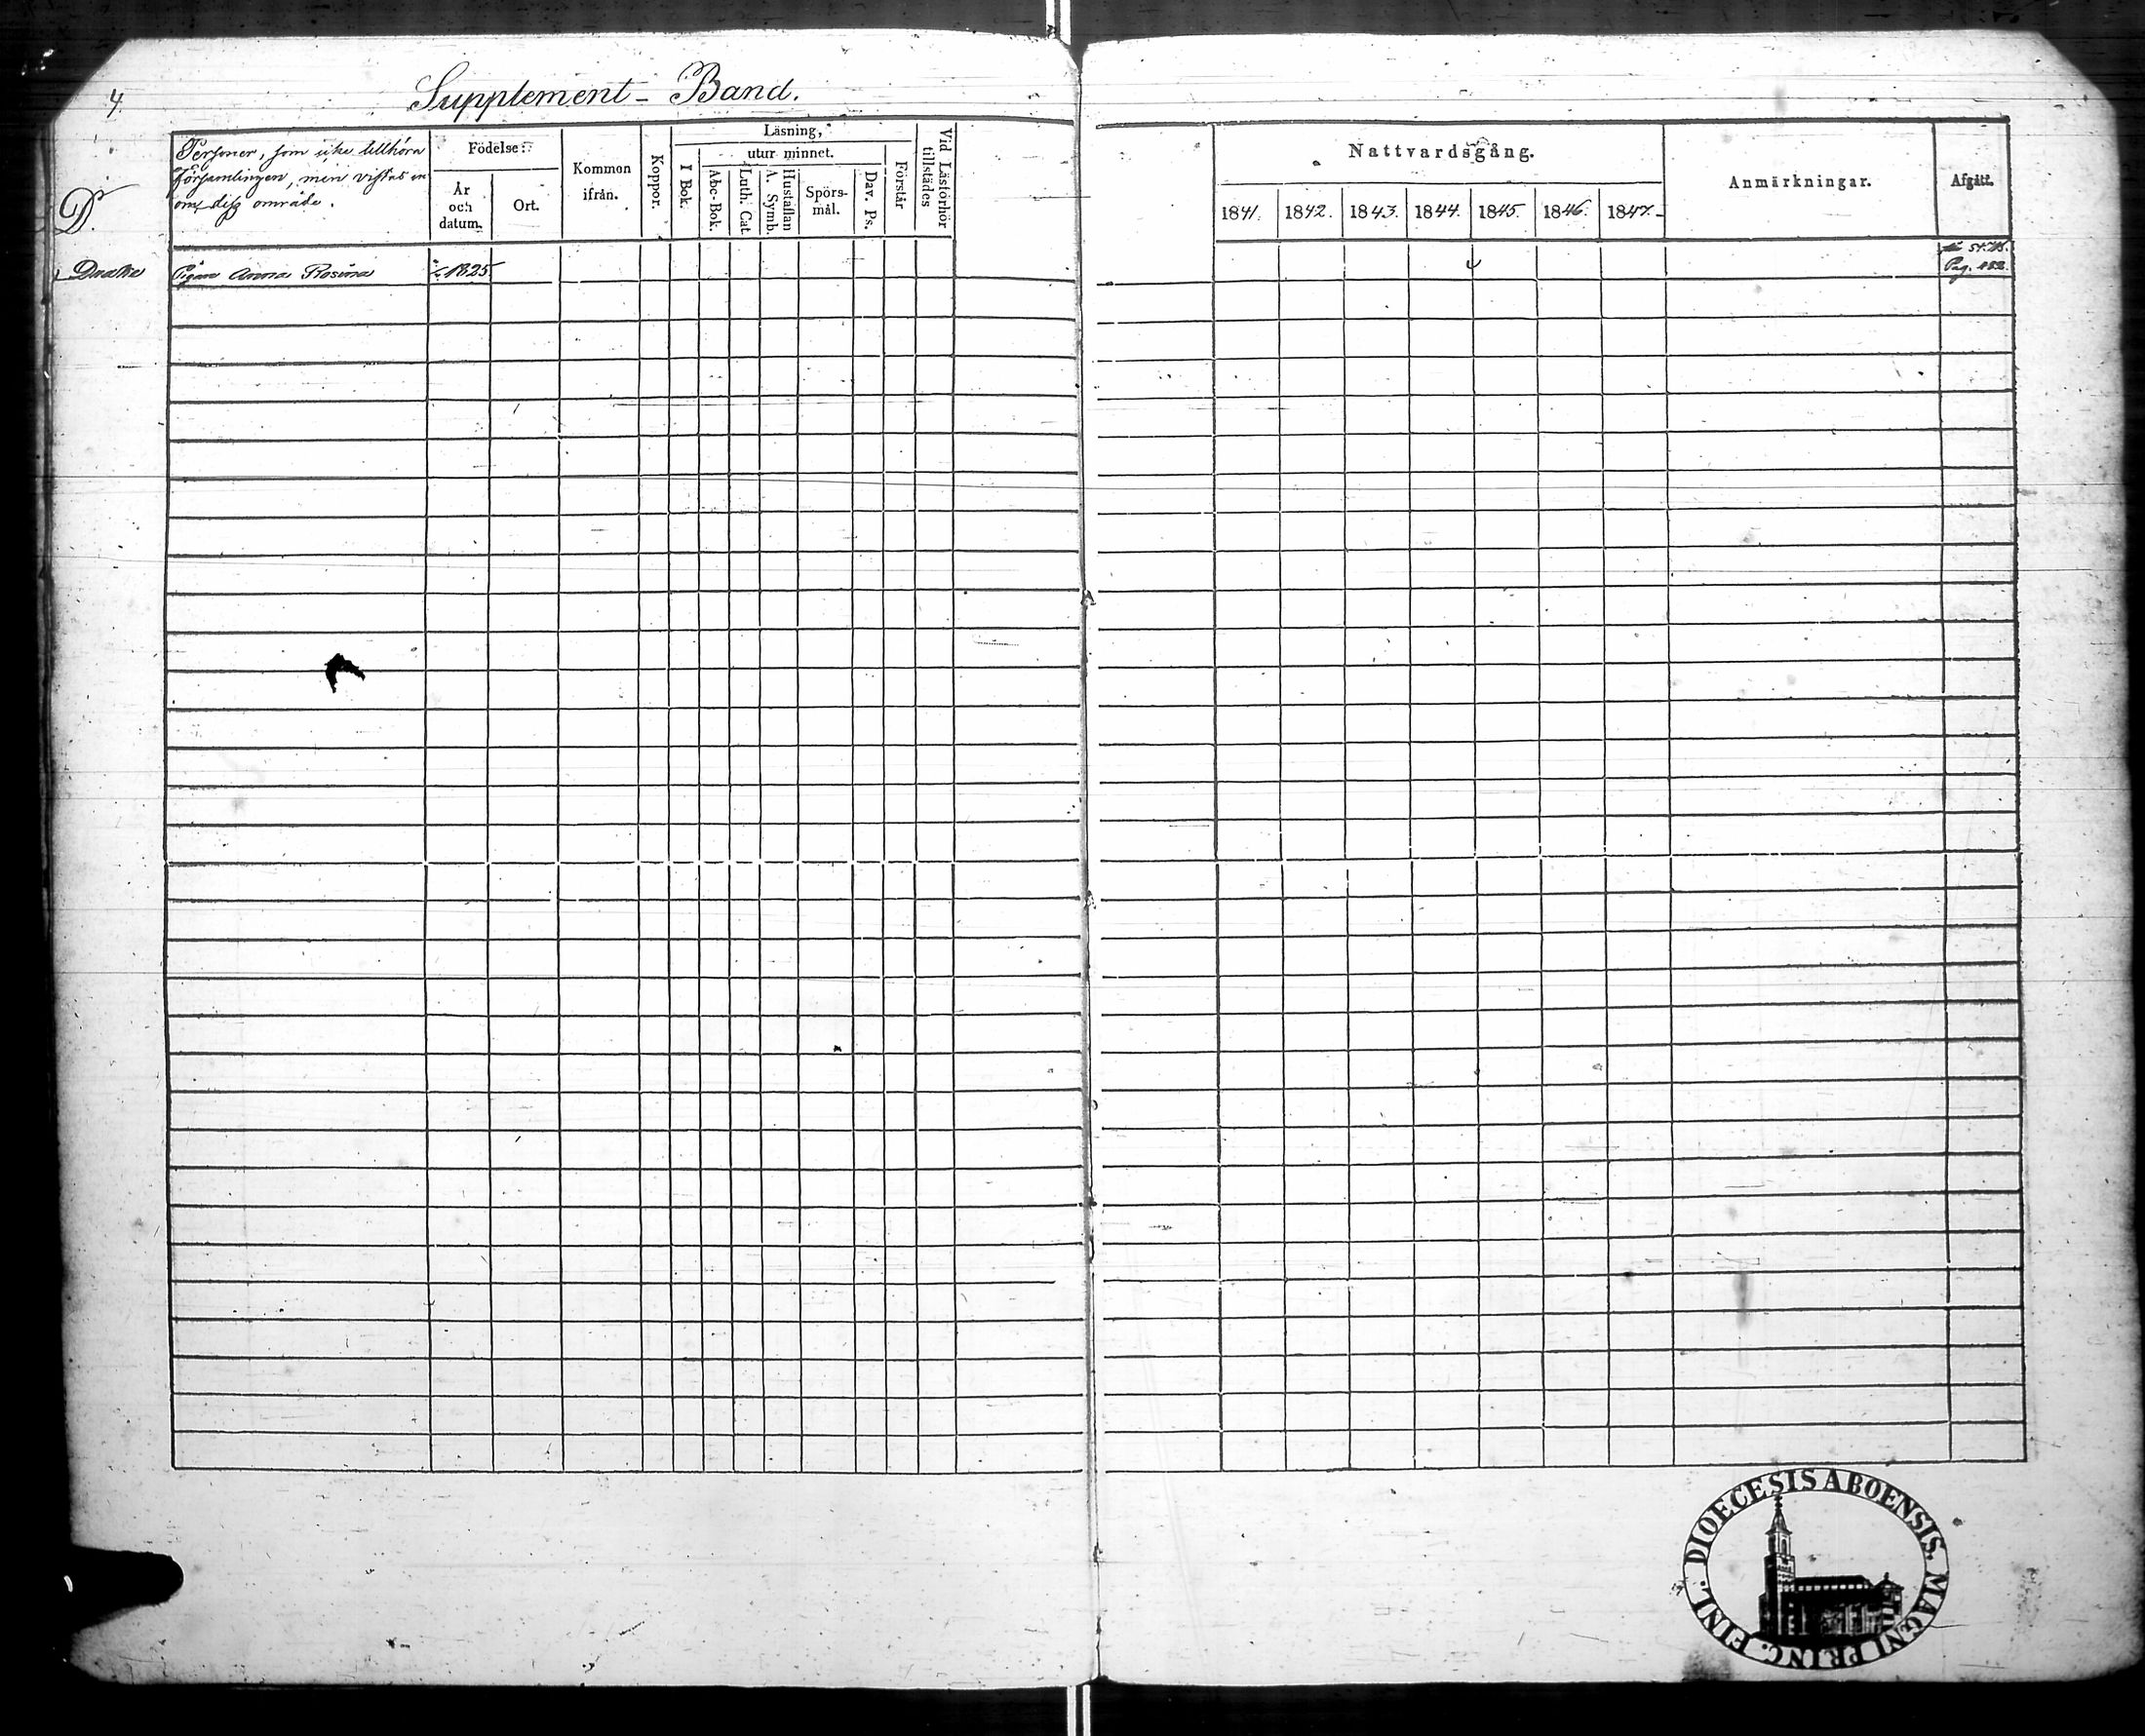 4.
Supplement-Band.
Personer, som icke tillhöra
församlingen, men vistas in
om dess område.
D.
Födelse:
År
och
datum.
Ort.
Kommen
ifrån.
Koppor.
Läsning,
utur minnet.
I Bok.
Abc-Bok.
Luth. Cat.
A. Symb.
Hustaflan
Spörs-
mål.
Dav. Ps.
Förstår
Vid Läsförhör
tillstädes
Nattvardsgång.
1841.
1842.
1843.
1844.
1845.
1846.
1847.
Anmärkningar.
Afgått.
Pigan Anna Rosina
1825
Pag. 182.
DIOECESIS ABOENSIS. MAGNI PRINC. FINL.